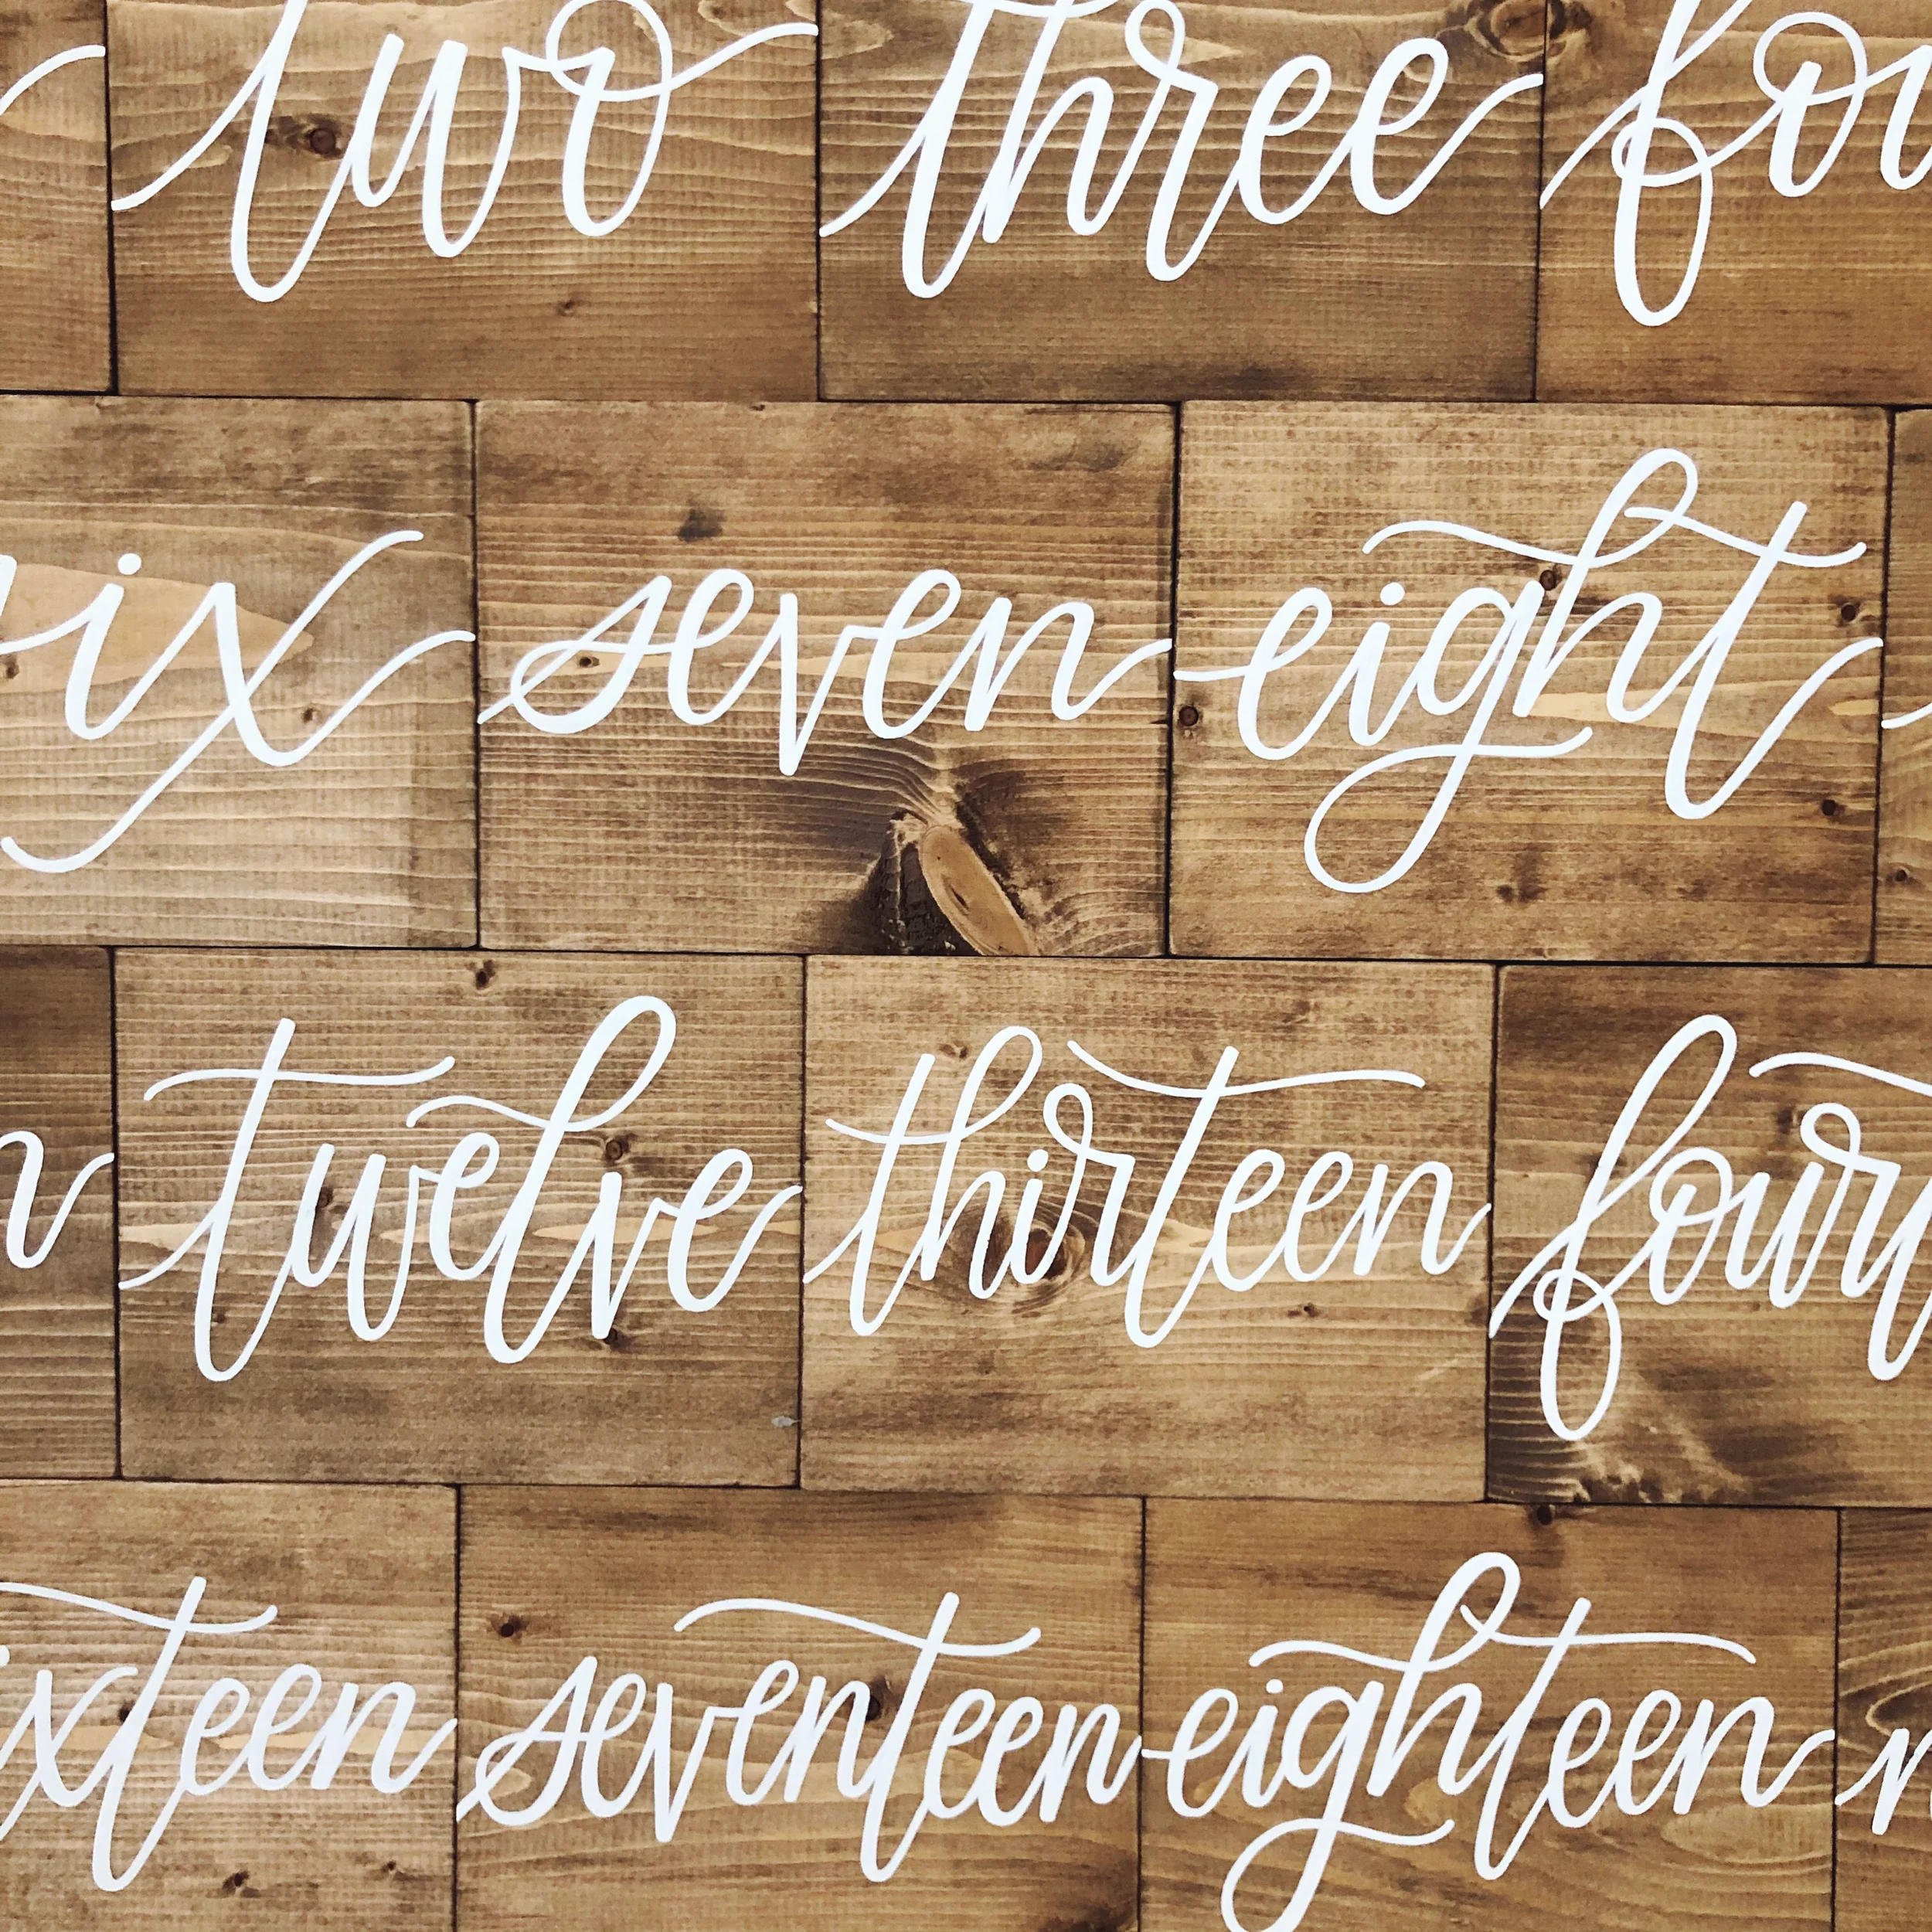 two three fou
ix seven eight
n twelve thirteen four
ixteen seventeen eighteen n